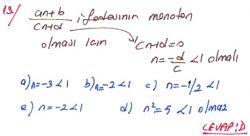 13/ an+b / cn+d ifadesinin monoton
olması için cn+d=0
n=-d/c <1 olmalı
a) n=-3<1 b) n=-2<1 c) n=-1/2<1
e) n=-2<1 d) n²=5<1 olmaz
CEVAP D